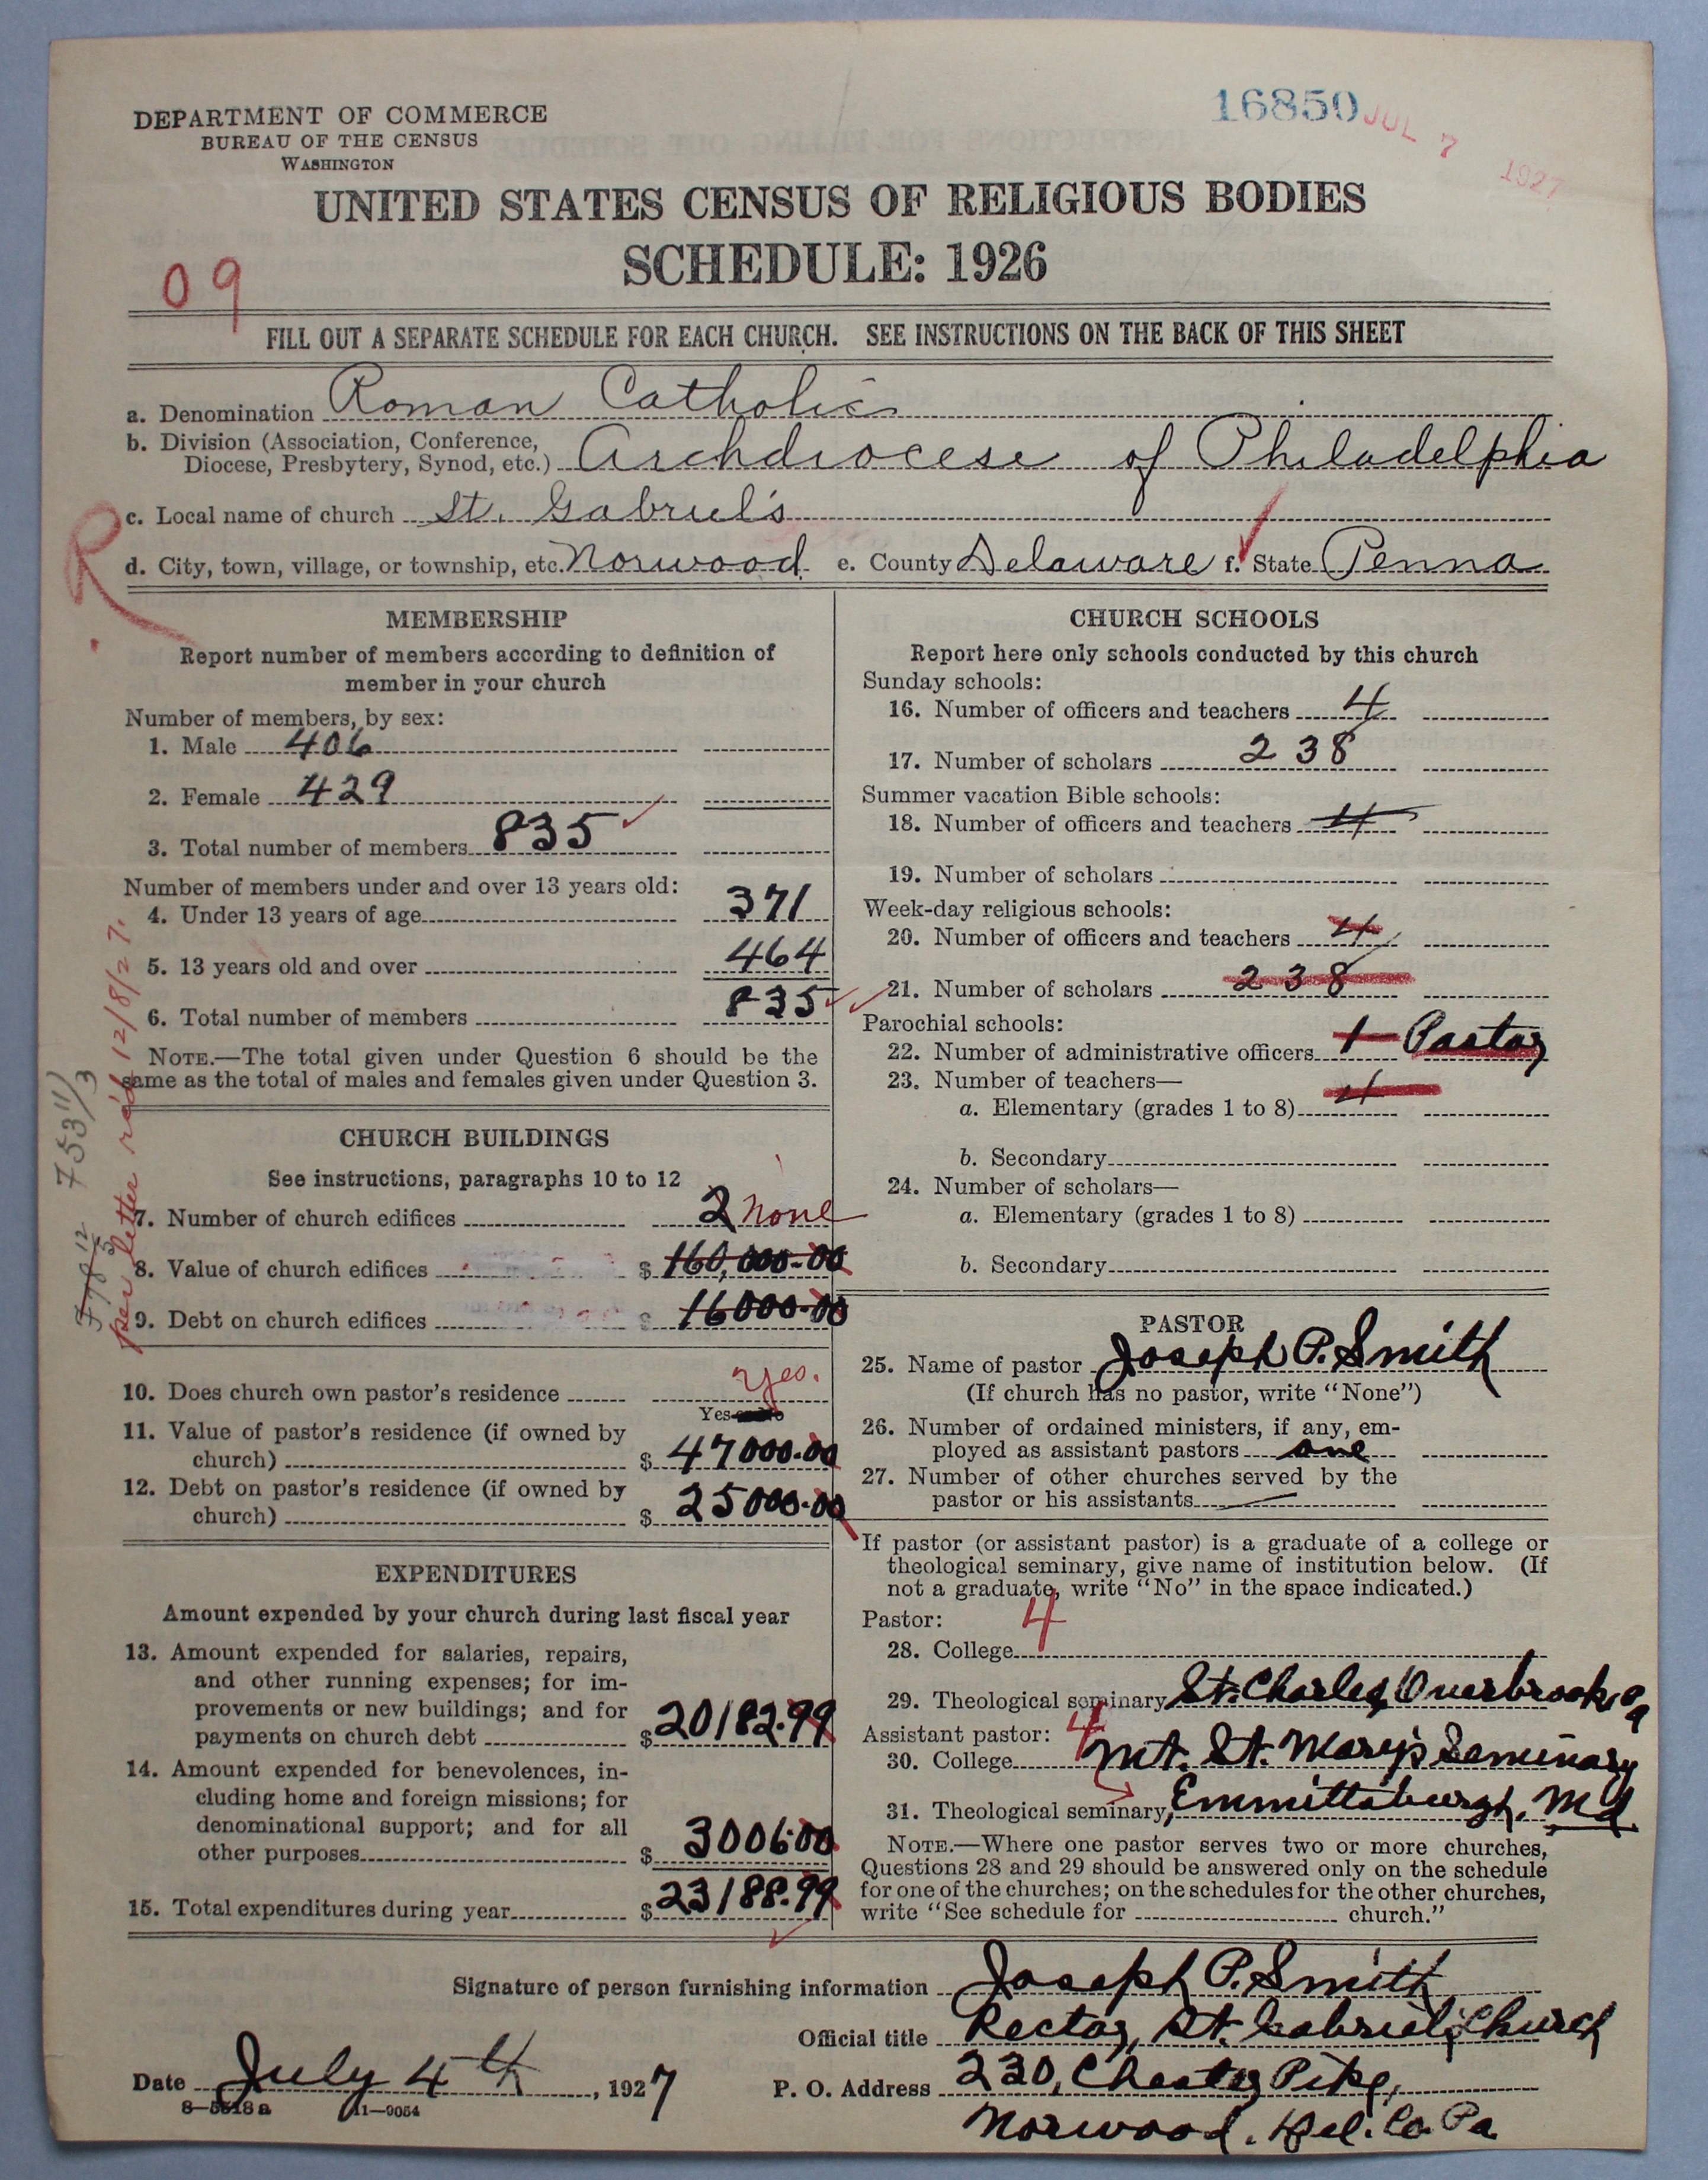 DEPARTMENT OF COMMERCE
BUREAU OF THE CENSUS
WASHINGTON
16850
JUL 7 1927
UNITED STATES CENSUS OF RELIGIOUS BODIES
SCHEDULE: 1926
09
FILL OUT A SEPARATE SCHEDULE FOR EACH CHURCH. SEE INSTRUCTIONS ON THE BACK OF THIS SHEET
a. Denomination Roman Catholic
b. Division (Association, Conference, Diocese, Presbytery, Synod, etc.) Archdiocese of Philadelphia
c. Local name of church St. Gabriel's
R
d. City, town, village, or township, etc. Norwood e. County Delaware f. State Penna
MEMBERSHIP
Report number of members according to definition of
member in your church
Number of members, by sex:
1. Male 406
2. Female 429
3. Total number of members 835
Number of members under and over 13 years old:
4. Under 13 years of age 371
5. 13 years old and over 464
6. Total number of members 835
NOTE.—The total given under Question 6 should be the
same as the total of males and females given under Question 3.
per letter rec'd 12/8/27.
753 11/3
CHURCH BUILDINGS
See instructions, paragraphs 10 to 12
7. Number of church edifices 2 none
8. Value of church edifices $ 160,000.00
9. Debt on church edifices $ 16000.00
10. Does church own pastor's residence yes.
Yes or No
11. Value of pastor's residence (if owned by
church) $ 47000.00
12. Debt on pastor's residence (if owned by
church) $ 25000.00
EXPENDITURES
Amount expended by your church during last fiscal year
13. Amount expended for salaries, repairs,
and other running expenses; for im-
provements or new buildings; and for
payments on church debt $ 20182.99
14. Amount expended for benevolences, in-
cluding home and foreign missions; for
denominational support; and for all
other purposes $ 3006.00
15. Total expenditures during year $ 23188.99
CHURCH SCHOOLS
Report here only schools conducted by this church
Sunday schools:
16. Number of officers and teachers 4
17. Number of scholars 238
Summer vacation Bible schools:
18. Number of officers and teachers 4
19. Number of scholars
Week-day religious schools:
20. Number of officers and teachers 4
21. Number of scholars 238
Parochial schools:
22. Number of administrative officers 1 Pastor
23. Number of teachers—
a. Elementary (grades 1 to 8) 4
b. Secondary
24. Number of scholars—
a. Elementary (grades 1 to 8)
b. Secondary
PASTOR
25. Name of pastor Joseph P. Smith
(If church has no pastor, write "None")
26. Number of ordained ministers, if any, em-
ployed as assistant pastors one
27. Number of other churches served by the
pastor or his assistants —
If pastor (or assistant pastor) is a graduate of a college or
theological seminary, give name of institution below. (If
not a graduate, write "No" in the space indicated.)
Pastor: 4
28. College
29. Theological seminary St. Charles, Overbrook, Pa
Assistant pastor: 4
30. College Mt. St. Mary's Seminary
31. Theological seminary, Emmittsburgh, Md
NOTE.—Where one pastor serves two or more churches,
Questions 28 and 29 should be answered only on the schedule
for one of the churches; on the schedules for the other churches,
write "See schedule for church."
Signature of person furnishing information Joseph P. Smith
Official title Rector, St. Gabriel's Church
Date July 4th, 1927
P. O. Address 230, Chester Pike,
Norwood, Del. Co. Pa
8—5518a 11—9054